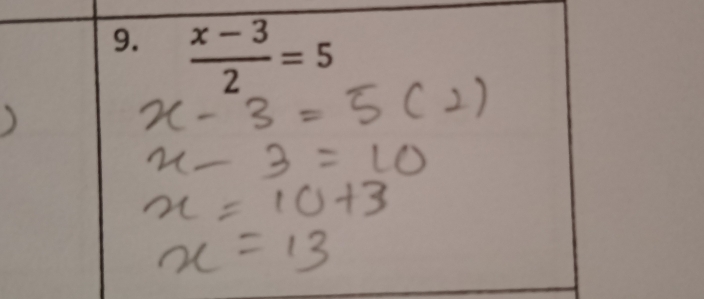 9. x – 3 / 2 = 5
x - 3 = 5 (2)
x - 3 = 10
x = 10+3
x = 13
)